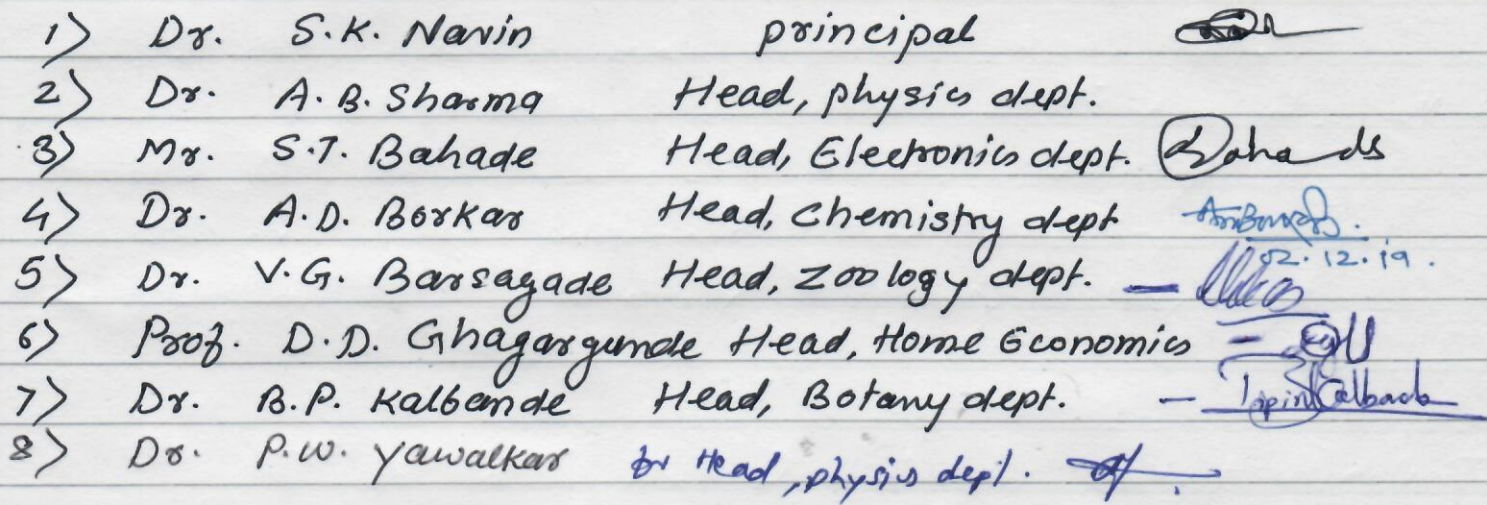 1) Dr. S.K. Navin principal
2) Dr. A.B. Sharma Head, physics dept.
3) Mr. S.T. Bahade Head, Electronics dept. Bahade
4) Dr. A.D. Borkar Head, Chemistry dept
02.12.19.
5) Dr. V.G. Barsagade Head, Zoology dept. —
6) Prof. D.D. Ghagargunde Head, Home Economics –
7) Dr. B.P. Kalbande Head, Botany dept. –
8) Dr. P.W. Yawalkar for Head, physics dept.